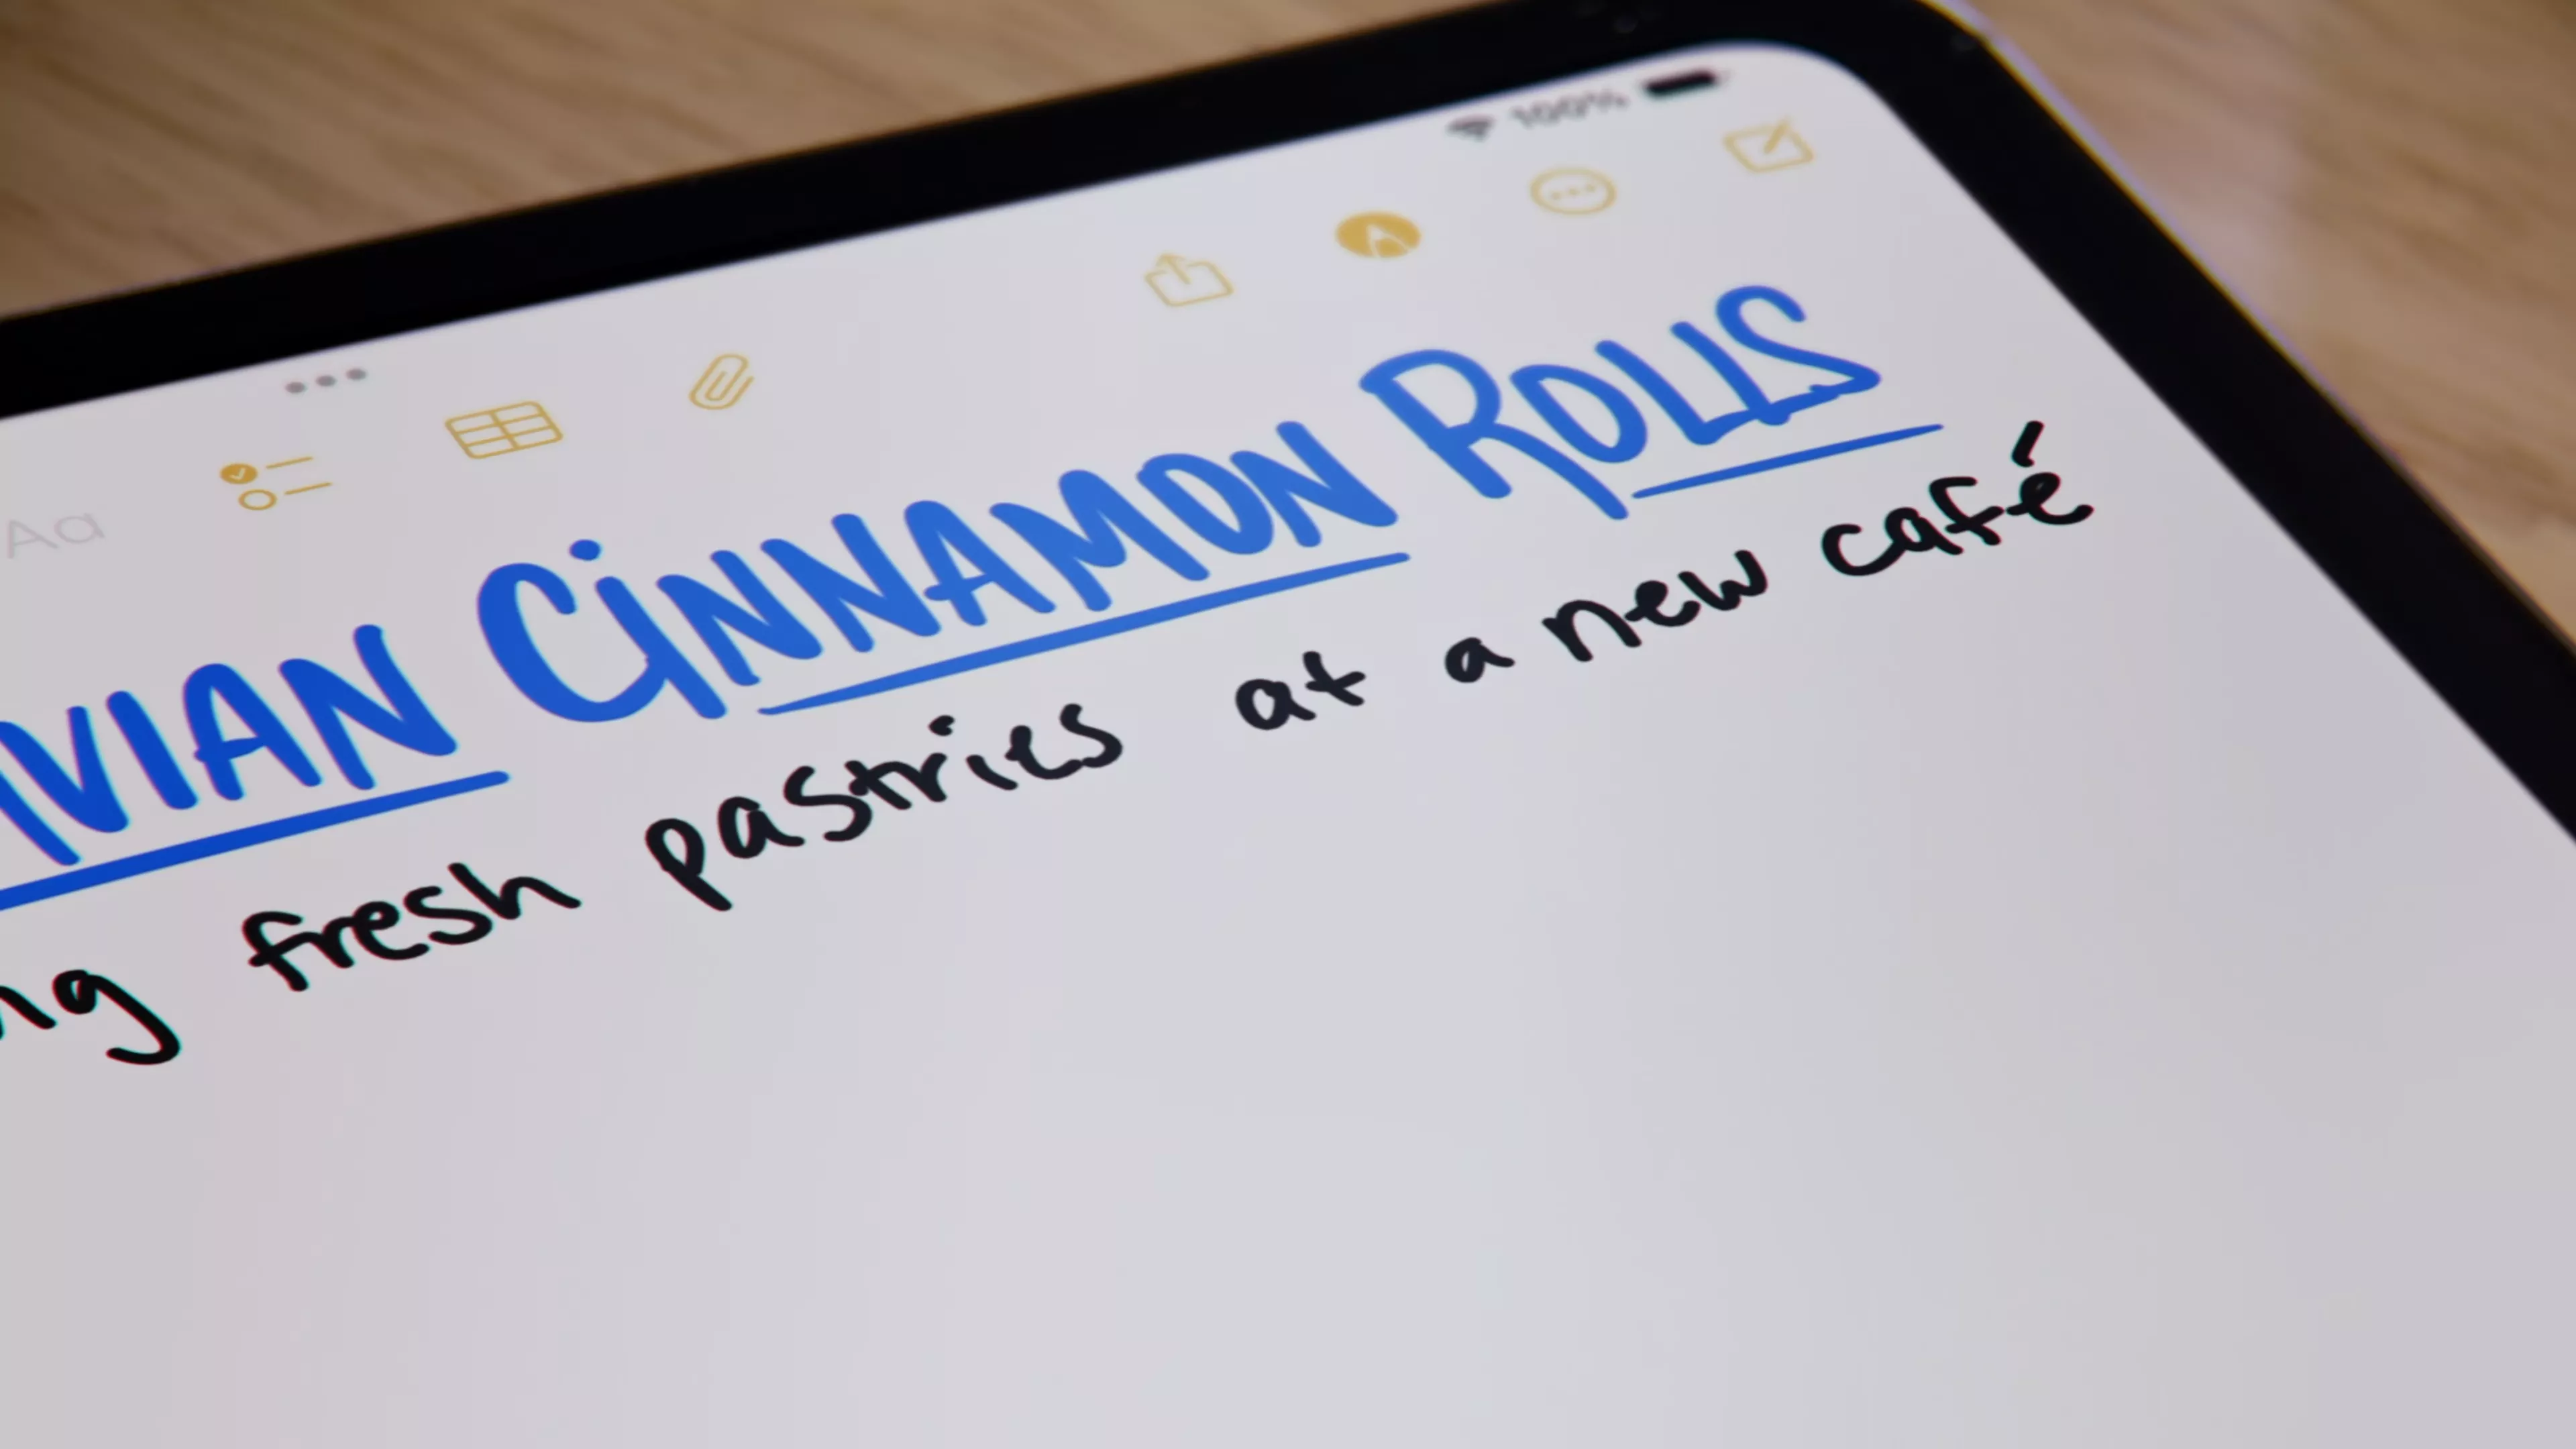 100%
Aa
VIAN CiNNAMON ROLLS
fresh pastries at a new café